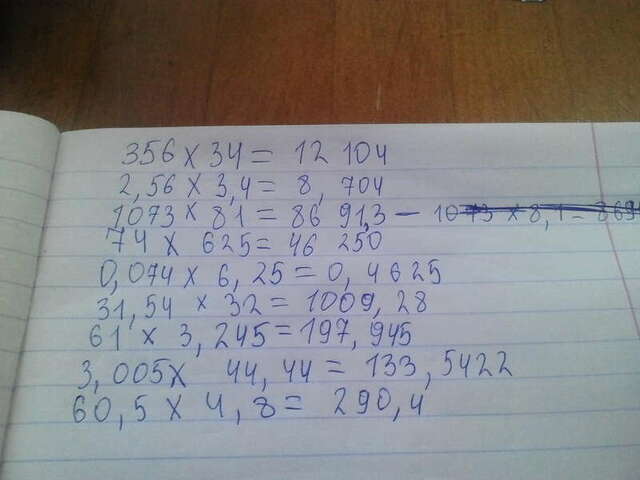 356 x 34 = 12 104
2,56 x 3,4 = 8, 704
1073 x 81 = 86 91,3 — 1073 x 8,1 = 869
74 x 625 = 46 250
0,074 x 6, 25 = 0, 4625
31,54 x 32 = 1009, 28
61 x 3, 245 = 197, 945
3, 005 x 44, 44 = 133, 5422
60,5 x 4, 8 = 290,4